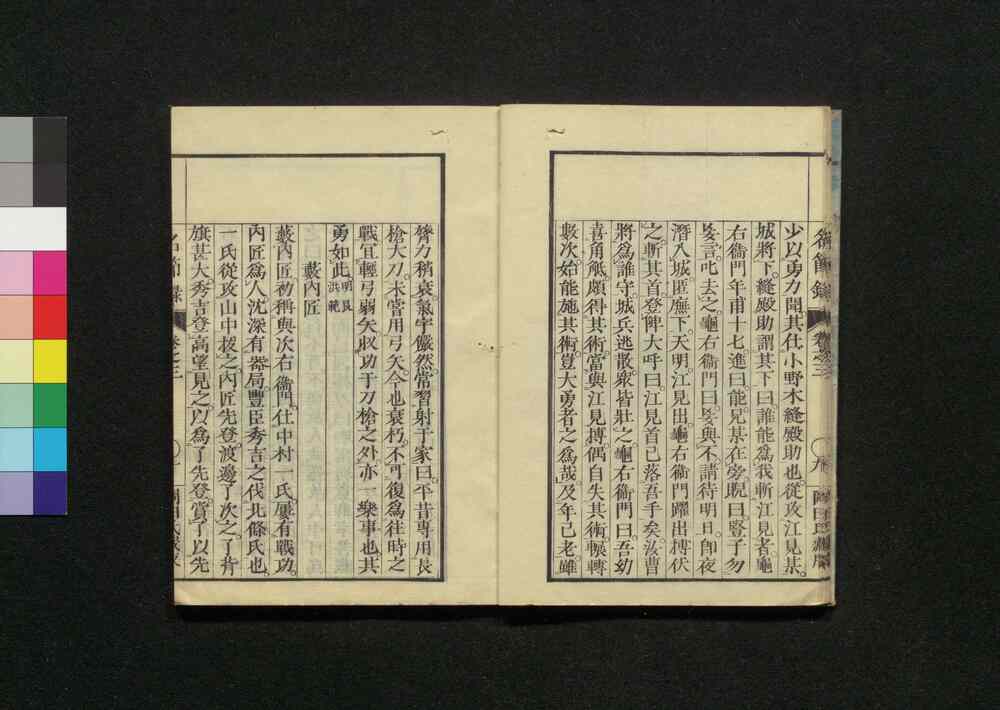 少以勇力聞其仕小野木縫殿助也從攻江見某
城將下縫殿助謂其下曰誰能爲我斬江見者龜
右衞門年甫十七進曰能兄某在旁睨曰豎子勿
妄言叱去之龜右衞門曰妄與不請待明日卽夜
潛入城匿廡下天明江見出龜右衞門躍出搏伏
之斬其首登陴大呼曰江見首已落吾手矣汝曹
將爲誰守城兵逃散衆皆壯之龜右衞門曰吾幼
喜角觝頗得其術當與江見搏偶自失其術輾轉
數次始能施其術豈大勇者之爲哉及年已老雖
膂力稍衰氣宇儼然常習射于家曰平昔專用長
槍大刀未嘗用弓矢今也衰朽不可復爲往時之
戰宜輕弓弱矢收功于刀槍之外亦一樂事也其
勇如此明良洪範
藪內匠
藪內匠初稱與次右衞門仕中村一氏屢有戰功
內匠爲人沈深有器局豐臣秀吉之伐北條氏也
一氏從攻山中拔之內匠先登渡邊了次之了背
旗甚大秀吉登高望見之以爲了先登賞了以先